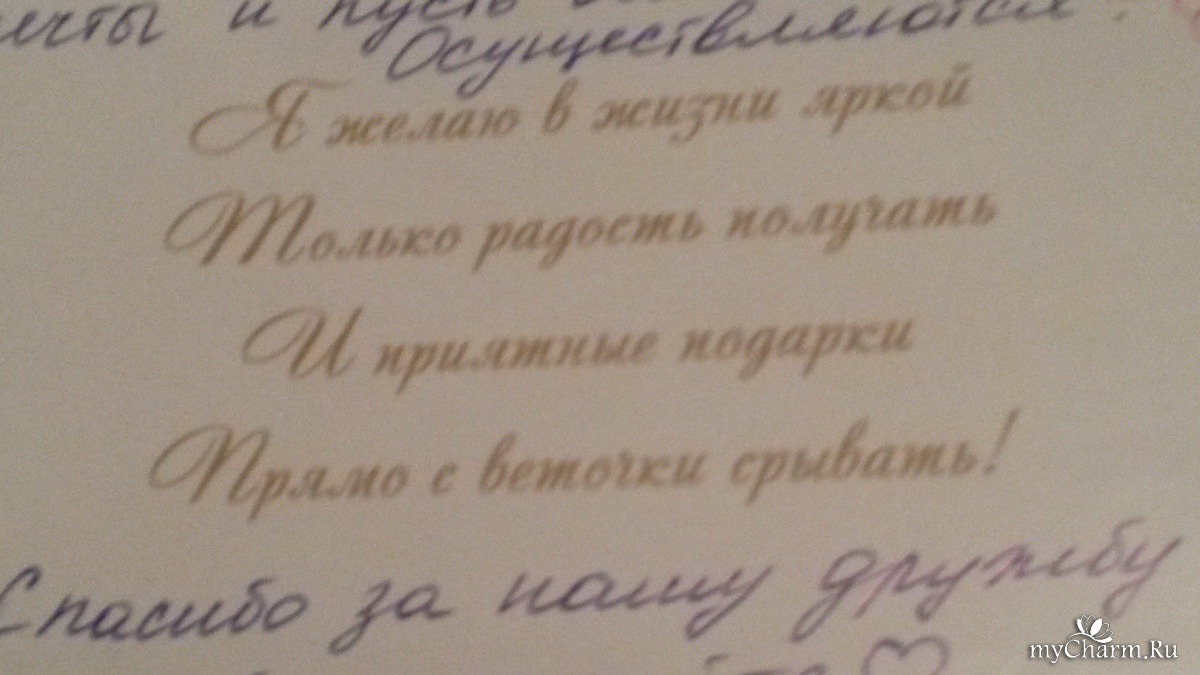 и пусть
Осуществляются!
Я желаю в жизни яркой
Только радость получать
И приятные подарки
Прямо с веточки срывать!
Спасибо за нашу дружбу
myCharm.Ru